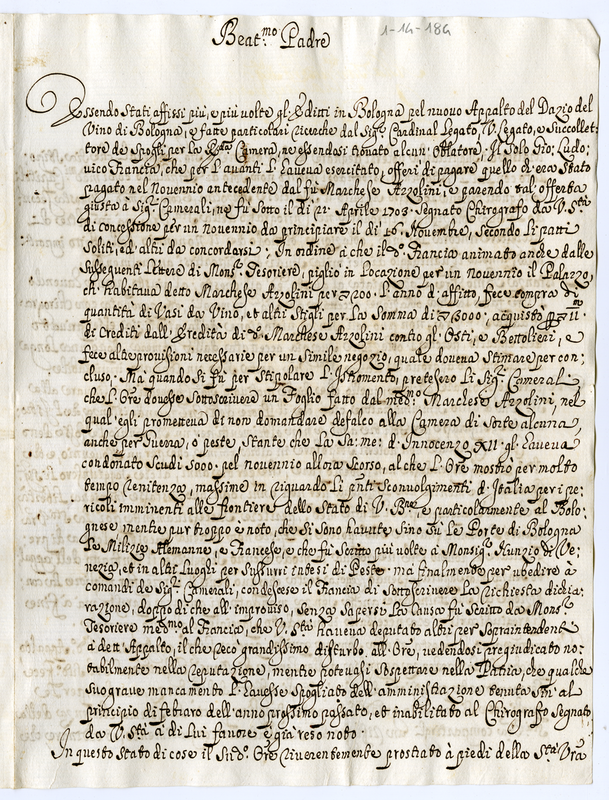 Beat.mo Padre
1-14-184
Essendo Stati affissi più, e più volte gl'Editti in Bologna pel nuovo Appalto del Dazio del
Vino di Bologna, e fatte particolari ricerche dal Sig.r Cardinal Legato, V. Legato, e Succollet-
tore de Spogli per la Camera, ne essendosi trovato alcun' Oblatore, Il Solo Gio: Ludo-
vico Francia, che per l'avanti l'aveva esercitato, offerì di pagare quello ch'era Stato
pagato nel Novennio antecedente dal fù Marchese Azzolini, e parendo tal' offerta
giusta a Sig.ri Camerali, ne fù Sotto il dì 21. Aprile 1703. Segnato Chirografo da V. S.tà
di concessione per un novennio da principiare il dì 16. Novembre, Secondo li patti
Soliti, ed altri da concordarsi: In ordine a che il d.o Francia animato anche dalle
Susseguenti Lettere di Mons.r Tesoriere, pigliò in Locazione per un novennio il Palazzo,
ch'habitava detto Marchese Azzolini per 200. l'anno d'affitto, fece compra di
quantità di Vasi da Vino, et altri Stigli per la Somma di 3000, acquistò
di Crediti dall'Eredità di d.o Marchese Azzolini contro gl'Osti, e Bettolieri, e
fece altre provisioni necessarie per un Simile negozio, quale doveva Stimare per con-
cluso. Mà quando Si fù per Stipolare l'Istromento, pretesero li Sig.ri Camerali
che l'Ore dovesse Sottoscrivere un Foglio fatto dal med.mo Marchese Azzolini, nel
qual'egli prometteva di non domandare defalco alla Camera di Sorte alcuna,
anche per Guerra, ò peste, Stante che la Sa: me: d'Innocenzo XII. gl'haveva
condonato Scudi 5000. pel novennio allora Scorso, al che l'Ore mostrò per molto
tempo renitenza, massime in riguardo li Sconvolgimenti d'Italia per i pe-
ricoli imminenti alle frontiere dello Stato di V. B.ne, e particolarmente al Bolo-
gnese mentre pur troppo è noto, che Si sono havute Sino Sù le Porte di Bologna
le Milizie Alemanne, e Francese, e che fù Scritto più volte à Monsig.r Nunzio di Ve-
nezia, et in altri Luoghi per Sussurri intesi di Peste. ma finalmente per ubedire à
comandi de Sig.ri Camerali, condescese il Francia di Sottoscrivere la richiesta dichia-
razione, doppo di che all'improviso, Senza Sapersi la Causa fù Scritto da Mons.r
Tesoriere med.mo al Francia, che V. S.tà haveva deputato altri per Sopraintendente
à dett'Appalto, il che recò grandissimo disturbo all'Ore, vedendosi pregiudicato no-
tabilmente nella reputazione, mentre potevasi Sospettare nella Patria, che qualche
Suo grave mancamento l'havesse Spogliato dell'amministrazione tenuta Sin'al
principio di febraro dell'anno prossimo passato, et inabilitato al Chirografo Segnato
da V. S.tà à di lui favore e già reso noto.
In questo Stato di cose il Sud.o Ore riverentemente prostrato à piedi della S.tà V.ra